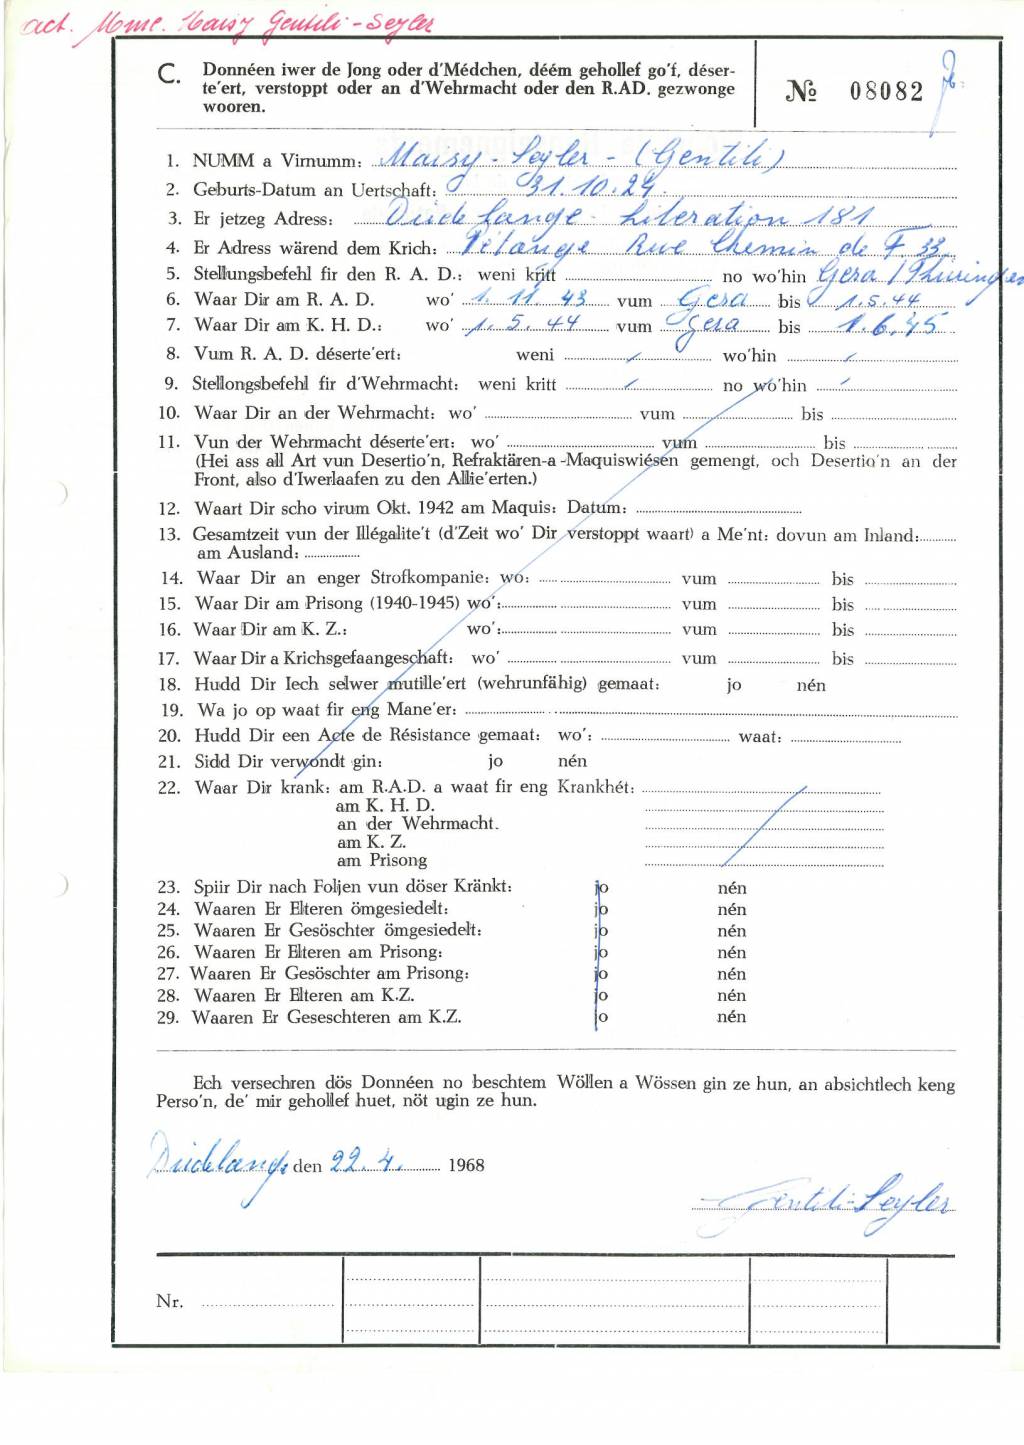 act. Mme. Maisy Gentili-Seyler
C. Donnéen iwer de Jong oder d'Médchen, déém gehollef go'f, déser-
te'ert, verstoppt oder an d'Wehrmacht oder den R.AD. gezwonge
wooren.
№ 08082
1. NUMM a Virnumm: Maisy - Seyler - (Gentili)
2. Geburts-Datum an Uertschaft: 31.10.24.
3. Er jetzeg Adress: Düdelange - Liberation 181
4. Er Adress wärend dem Krich: Pétange Rue Chemin de F. 33
5. Stellungsbefehl fir den R. A. D.: weni kritt no wo'hin Gera / Thüringen
6. Waar Dir am R. A. D. wo' 1. 11. 43 vum Gera bis 1.5.44
7. Waar Dir am K. H. D.: wo' 1. 5. 44 vum Gera bis 1.6.45
8. Vum R. A. D. déserte'ert: weni / wo'hin /
9. Stellongsbefehl fir d'Wehrmacht: weni kritt / no wo'hin /
10. Waar Dir an der Wehrmacht: wo' vum bis
11. Vun der Wehrmacht déserte'ert: wo' vum bis
(Hei ass all Art vun Desertio'n, Refraktären-a-Maquiswiésen gemengt, och Desertio'n an der
Front, also d'Iwerlaafen zu den Allie'erten.)
12. Waart Dir scho virum Okt. 1942 am Maquis: Datum:
13. Gesamtzeit vun der Illégalite't (d'Zeit wo' Dir verstoppt waart) a Me'nt: dovun am Inland:
am Ausland:
14. Waar Dir an enger Strofkompanie: wo: vum bis
15. Waar Dir am Prisong (1940-1945) wo': vum bis
16. Waar Dir am K. Z.: wo': vum bis
17. Waar Dir a Krichsgefaangeschaft: wo' vum bis
18. Hudd Dir Iech selwer mutille'ert (wehrunfähig) gemaat: jo nén
19. Wa jo op waat fir eng Mane'er:
20. Hudd Dir een Acte de Résistance gemaat: wo': waat:
21. Sidd Dir verwondt gin: jo nén
22. Waar Dir krank: am R.A.D. a waat fir eng Krankhét:
am K. H. D.
an der Wehrmacht.
am K. Z.
am Prisong
23. Spiir Dir nach Foljen vun döser Kränkt: jo nén
24. Waaren Er Elteren ömgesiedelt: jo nén
25. Waaren Er Gesöschter ömgesiedelt: jo nén
26. Waaren Er Elteren am Prisong: jo nén
27. Waaren Er Gesöschter am Prisong: jo nén
28. Waaren Er Elteren am K.Z. jo nén
29. Waaren Er Geseschteren am K.Z. jo nén
Ech versechren dös Donnéen no beschtem Wöllen a Wössen gin ze hun, an absichtlech keng
Perso'n, de' mir gehollef huet, nöt ugin ze hun.
Düdelange den 22. 4. 1968
Gentili-Seyler
Nr.